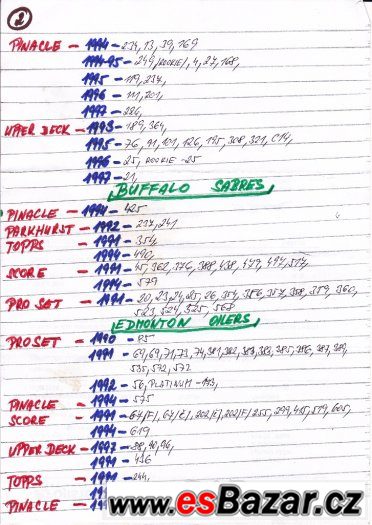 2
PINACLE - 1994 - 234, 13, 39, 169
1994-95 - 249 /ROOKIE/, 4, 27, 168,
1995 - 119, 237,
1996 - 111, 201,
1997 - 226,
UPPER DECK - 1993 - 189, 364,
1995 - 76, 91, 101, 126, 195, 308, 321, C14,
1996 - 25, ROOKIE - 25
1997 - 21,
BUFFALO SABRES
PINACLE - 1994 - 425
PARKHURST - 1992 - 237, 241
TOPPS - 1991 - 354,
1994 - 490,
SCORE - 1991 - 45, 362, 376, 388, 438, 479, 497, 514,
1994 - 579
PRO SET - 1991 - 20, 23, 24, 25, 26, 354, 356, 357, 358, 359, 360,
523, 524, 525, 568
EDMONTON OILERS
PRO SET - 1990 - 85
1991 - 69, 71, 73, 74, 381, 382, 383, 385, 386, 387,
535, 572, 572
1992 - 56, PLATINUM
PINACLE - 1994 - 575
SCORE - 1991 - 255, 299, 415, 519, 605,
1994 - 619
UPPER DECK - 1997 - 38, 40, 96,
1991 - 416
TOPPS - 1991 - 244,
PINACLE -
www.esBazar.cz